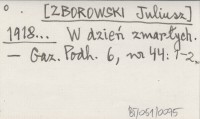 [ZBOROWSKI Juliusz]
1918... W dzień zmarłych.
— Gaz. Podh. 6, nr 44: 1-2.
BJ/051/0095